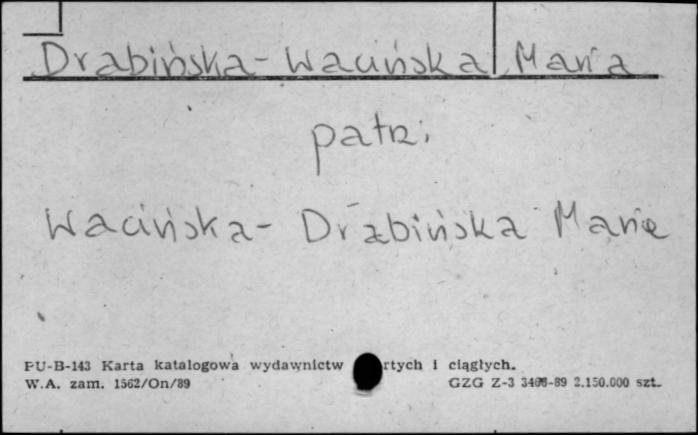 Drabińska-Wacińska Maria
patrz:
Wacińska-Drabińska Maria
PU-B-143 Karta katalogowa wydawnictw rtych i ciągłych.
W.A. zam. 1562/On/89 GZG Z-3 3408-89 2.150.000 szt.